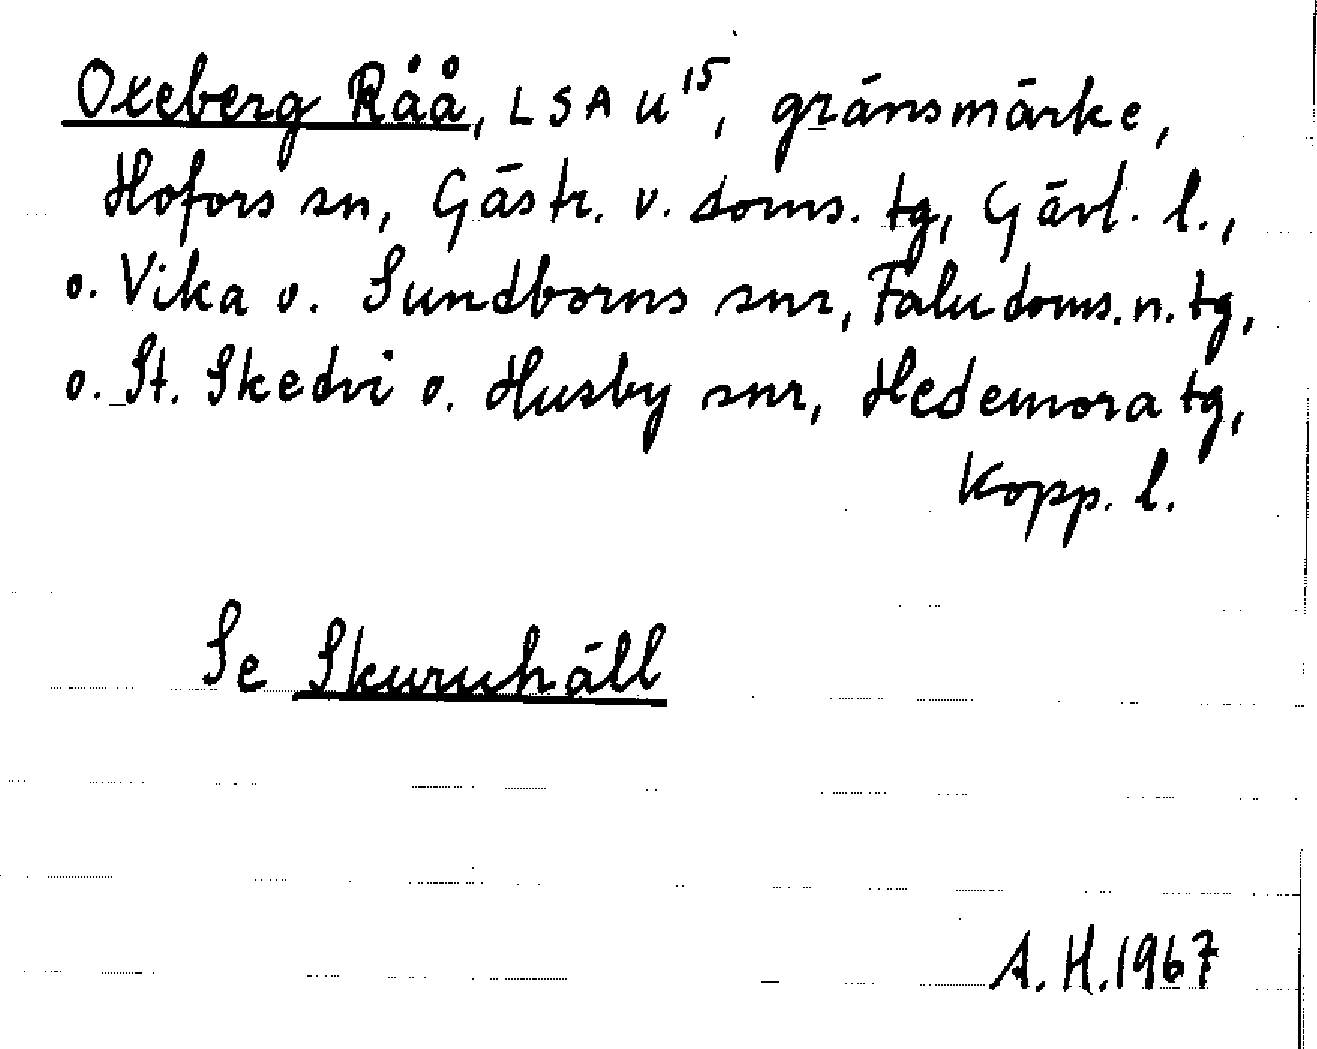 Oxeberg Råå, LSA U¹⁵, gränsmärke,
Hofors sn, Gästr. v. doms. tg, Gävl. l.,
o. Vika o. Sundborns snr, Falu doms. n. tg,
o. St. Skedvi o. Husby snr, Hedemora tg,
Kopp. l.
Se Skuruhäll
A. H. 1967